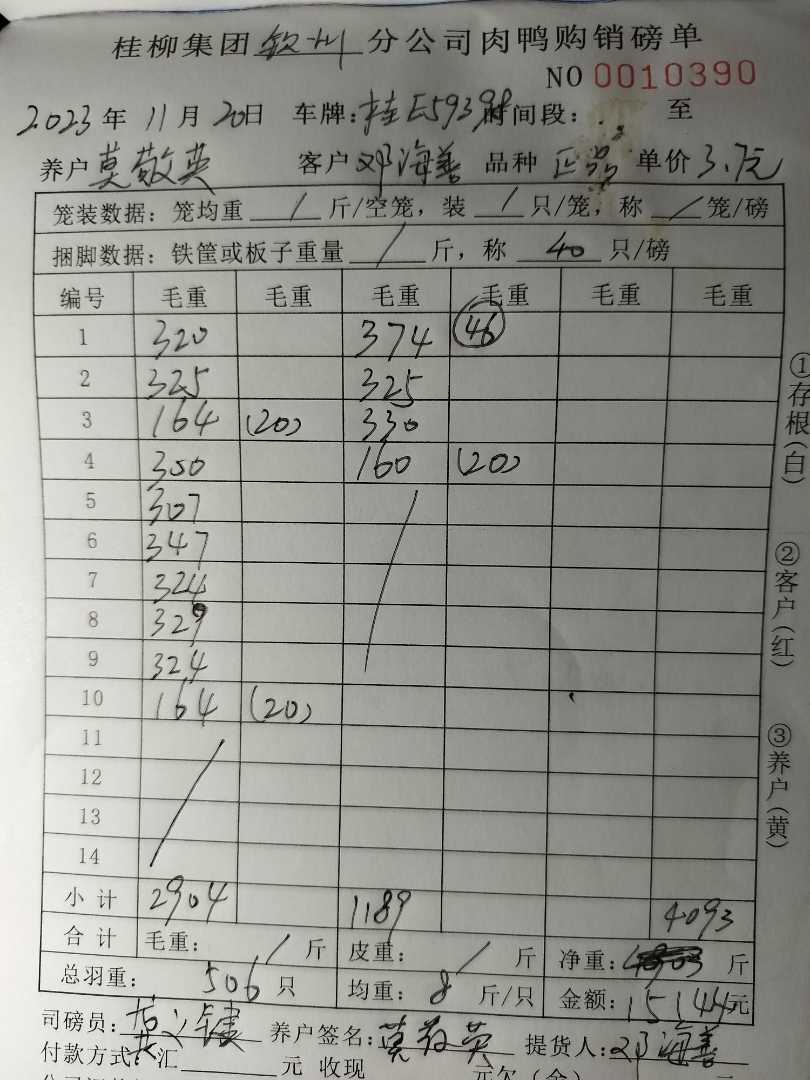 桂柳集团钦州分公司肉鸭购销磅单
NO 0010390
2023年11月20日 车牌:桂E5939 时间段: 至
养户 莫敬英 客户 邓海善 品种 正品 单价 3.7元
笼装数据: 笼均重 / 斤/空笼, 装 / 只/笼, 称 / 笼/磅
捆脚数据: 铁筐或板子重量 / 斤, 称 40 只/磅
编号 毛重 毛重 毛重 毛重 毛重 毛重
1 320 374 46
2 325 325
3 164 (20) 330
4 300 160 (20)
5 307
6 347
7 324
8 329
9 324
10 164 (20)
11
12
13
14
小计 2904 1189 4093
合计 毛重: / 斤 皮重: / 斤 净重: 斤
总羽重: 506 只 均重: 8 斤/只 金额: 15144元
司磅员: 养户签名: 莫敬英 提货人: 邓海善
付款方式: 汇 元 收现 元欠(余) 元
①存根(白)
②客户(红)
③养户(黄)